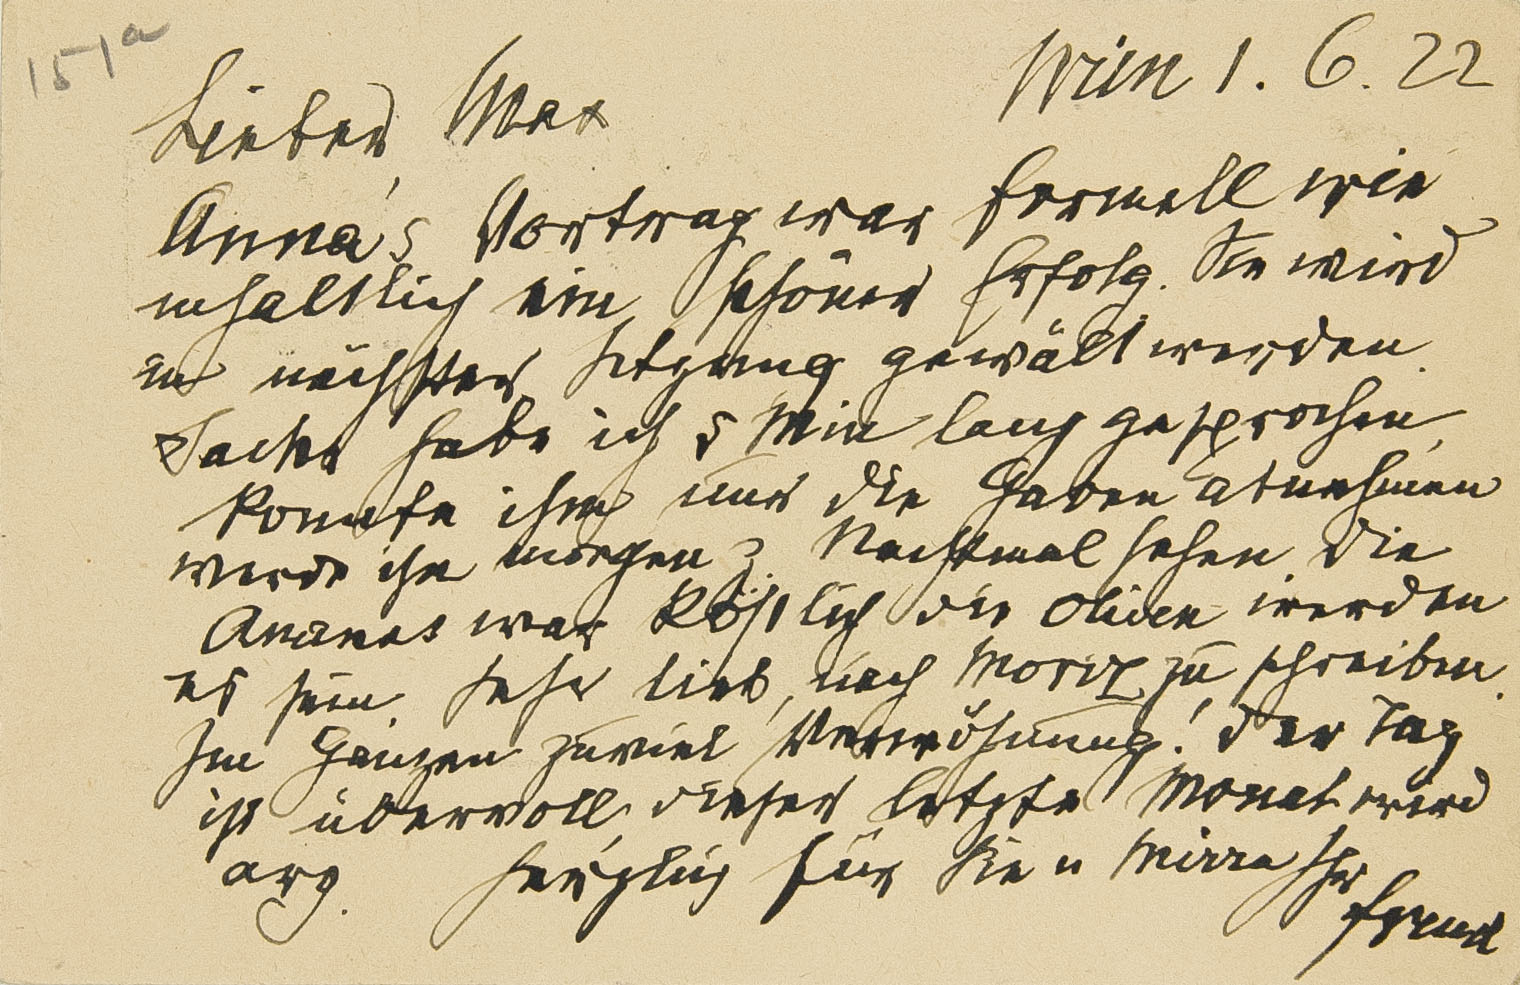 151a
Wien 1. 6. 22
Lieber Max
Anna's Vortrag war formell wie
inhaltlich ein schöner Erfolg. Sie wird
in nächster Sitzung gewält werden.
Sachs habe ich 5 Min lang gesprochen,
konnte ihm nur die Gaben abnehmen
werde ihn morgen z. Nachtmal sehen. Die
Ananas war köstlich die Oliven werden
es sein. Sehr lieb, nach Moriz zu schreiben.
Im Ganzen zuviel Verwöhnung! Der Tag
ist übervoll, dieser letzte Monat wird
arg. Herzlich für Sie u Mirra Ihr
Freud